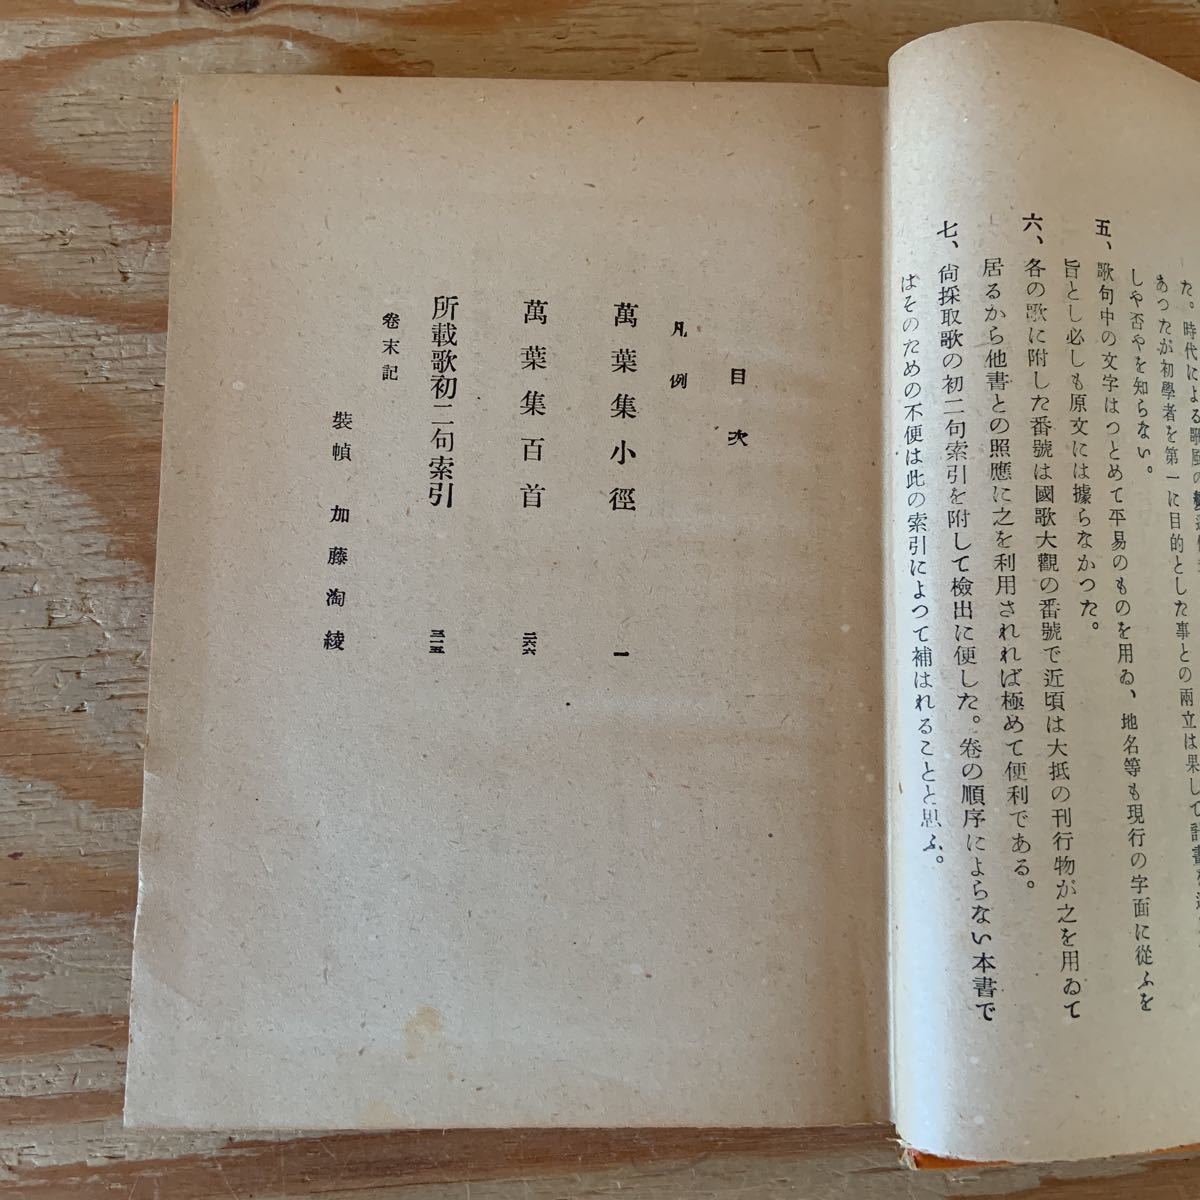 た。時代による歌風の
あつたが初學者を第一に目的とした事との兩立は果して
しや否やを知らない。
五、歌句中の文字はつとめて平易のものを用ゐ、地名等も現行の字面に從ふを
旨とし必しも原文には據らなかつた。
六、各の歌に附した番號は國歌大觀の番號で近頃は大抵の刊行物が之を用ゐて
居るから他書との照應に之を利用されれば極めて便利である。
七、尙採取歌の初二句索引を附して檢出に便した。卷の順序によらない本書で
はそのための不便は此の索引によつて補はれることと思ふ。
目次
凡例
萬葉集小徑 一
萬葉集百首 二六六
所載歌初二句索引 三一五
卷末記
裝幀 加藤淘綾